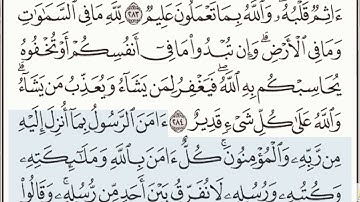 ءَاثِمٌ قَلْبُهُۥ ۗ وَٱللَّهُ بِمَا تَعْمَلُونَ عَلِيمٌ ٢٨٣ لِّلَّهِ مَا فِى ٱلسَّمَٰوَٰتِ
وَمَا فِى ٱلْأَرْضِ ۗ وَإِن تُبْدُوا۟ مَا فِىٓ أَنفُسِكُمْ أَوْ تُخْفُوهُ
يُحَاسِبْكُم بِهِ ٱللَّهُ ۖ فَيَغْفِرُ لِمَن يَشَآءُ وَيُعَذِّبُ مَن يَشَآءُ ۗ
وَٱللَّهُ عَلَىٰ كُلِّ شَىْءٍ قَدِيرٌ ٢٨٤ ءَامَنَ ٱلرَّسُولُ بِمَآ أُنزِلَ إِلَيْهِ
مِن رَّبِّهِۦ وَٱلْمُؤْمِنُونَ ۚ كُلٌّ ءَامَنَ بِٱللَّهِ وَمَلَٰٓئِكَتِهِۦ
وَكُتُبِهِۦ وَرُسُلِهِۦ لَا نُفَرِّقُ بَيْنَ أَحَدٍ مِّن رُّسُلِهِۦ ۚ وَقَالُوا۟